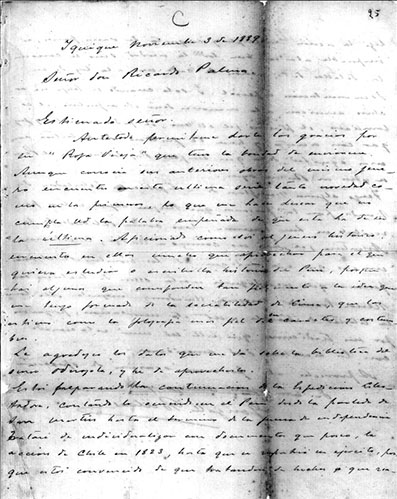 C
95
Iquique Noviembre 3 de 1889.
Señor don Ricardo Palma.
Estimado señor.
Ante todo permítame darle las gracias por
su "Ropa Vieja" que tuvo la bondad de enviarme
Aunque conocia sus anteriores obras del mismo géne-
ro encuentro en esta ultima serie tanta novedad co-
mo en la primera, lo que me hace desear que no
cumpla Ud la palabra empeñada de que esta ha de ser
la última. Aficionado como soi al jenero histórico
encuentro en ellas mucho que aprovechar para el que
quiera estudiar o escribir la historia del Perú, porque
hai algunas que corresponden tan fielmente a la idea que
yo tengo formada de la sociabilidad de Lima, que los
estimo como la fotografia mas fiel de su carácter, y costum
bres.
Le agradezco los datos que me da sobre la biblioteca del
señor Odriozola, y he de aprovecharlos.
Estoi preparando la continuacion de la Espedicion Liber-
tadora, contando lo ocurrido en el Perú desde la partida de
San Martin hasta el termino de la guerra de independencia
Trataré de individualizar con documentos que poseo, la
accion de Chile en 1823, hasta que se embarcó su ejército, por
que estoi convencido de que tratandose de hechos